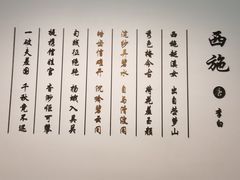 西施
李白
西施越溪女 出自苎萝山
秀色掩今古 荷花羞玉颜
浣纱弄碧水 自与清波闲
皓齿信难开 沉吟碧云间
勾践征绝艳 扬蛾入吴关
提携馆娃宫 杳渺讵可攀
一破夫差国 千秋竟不还